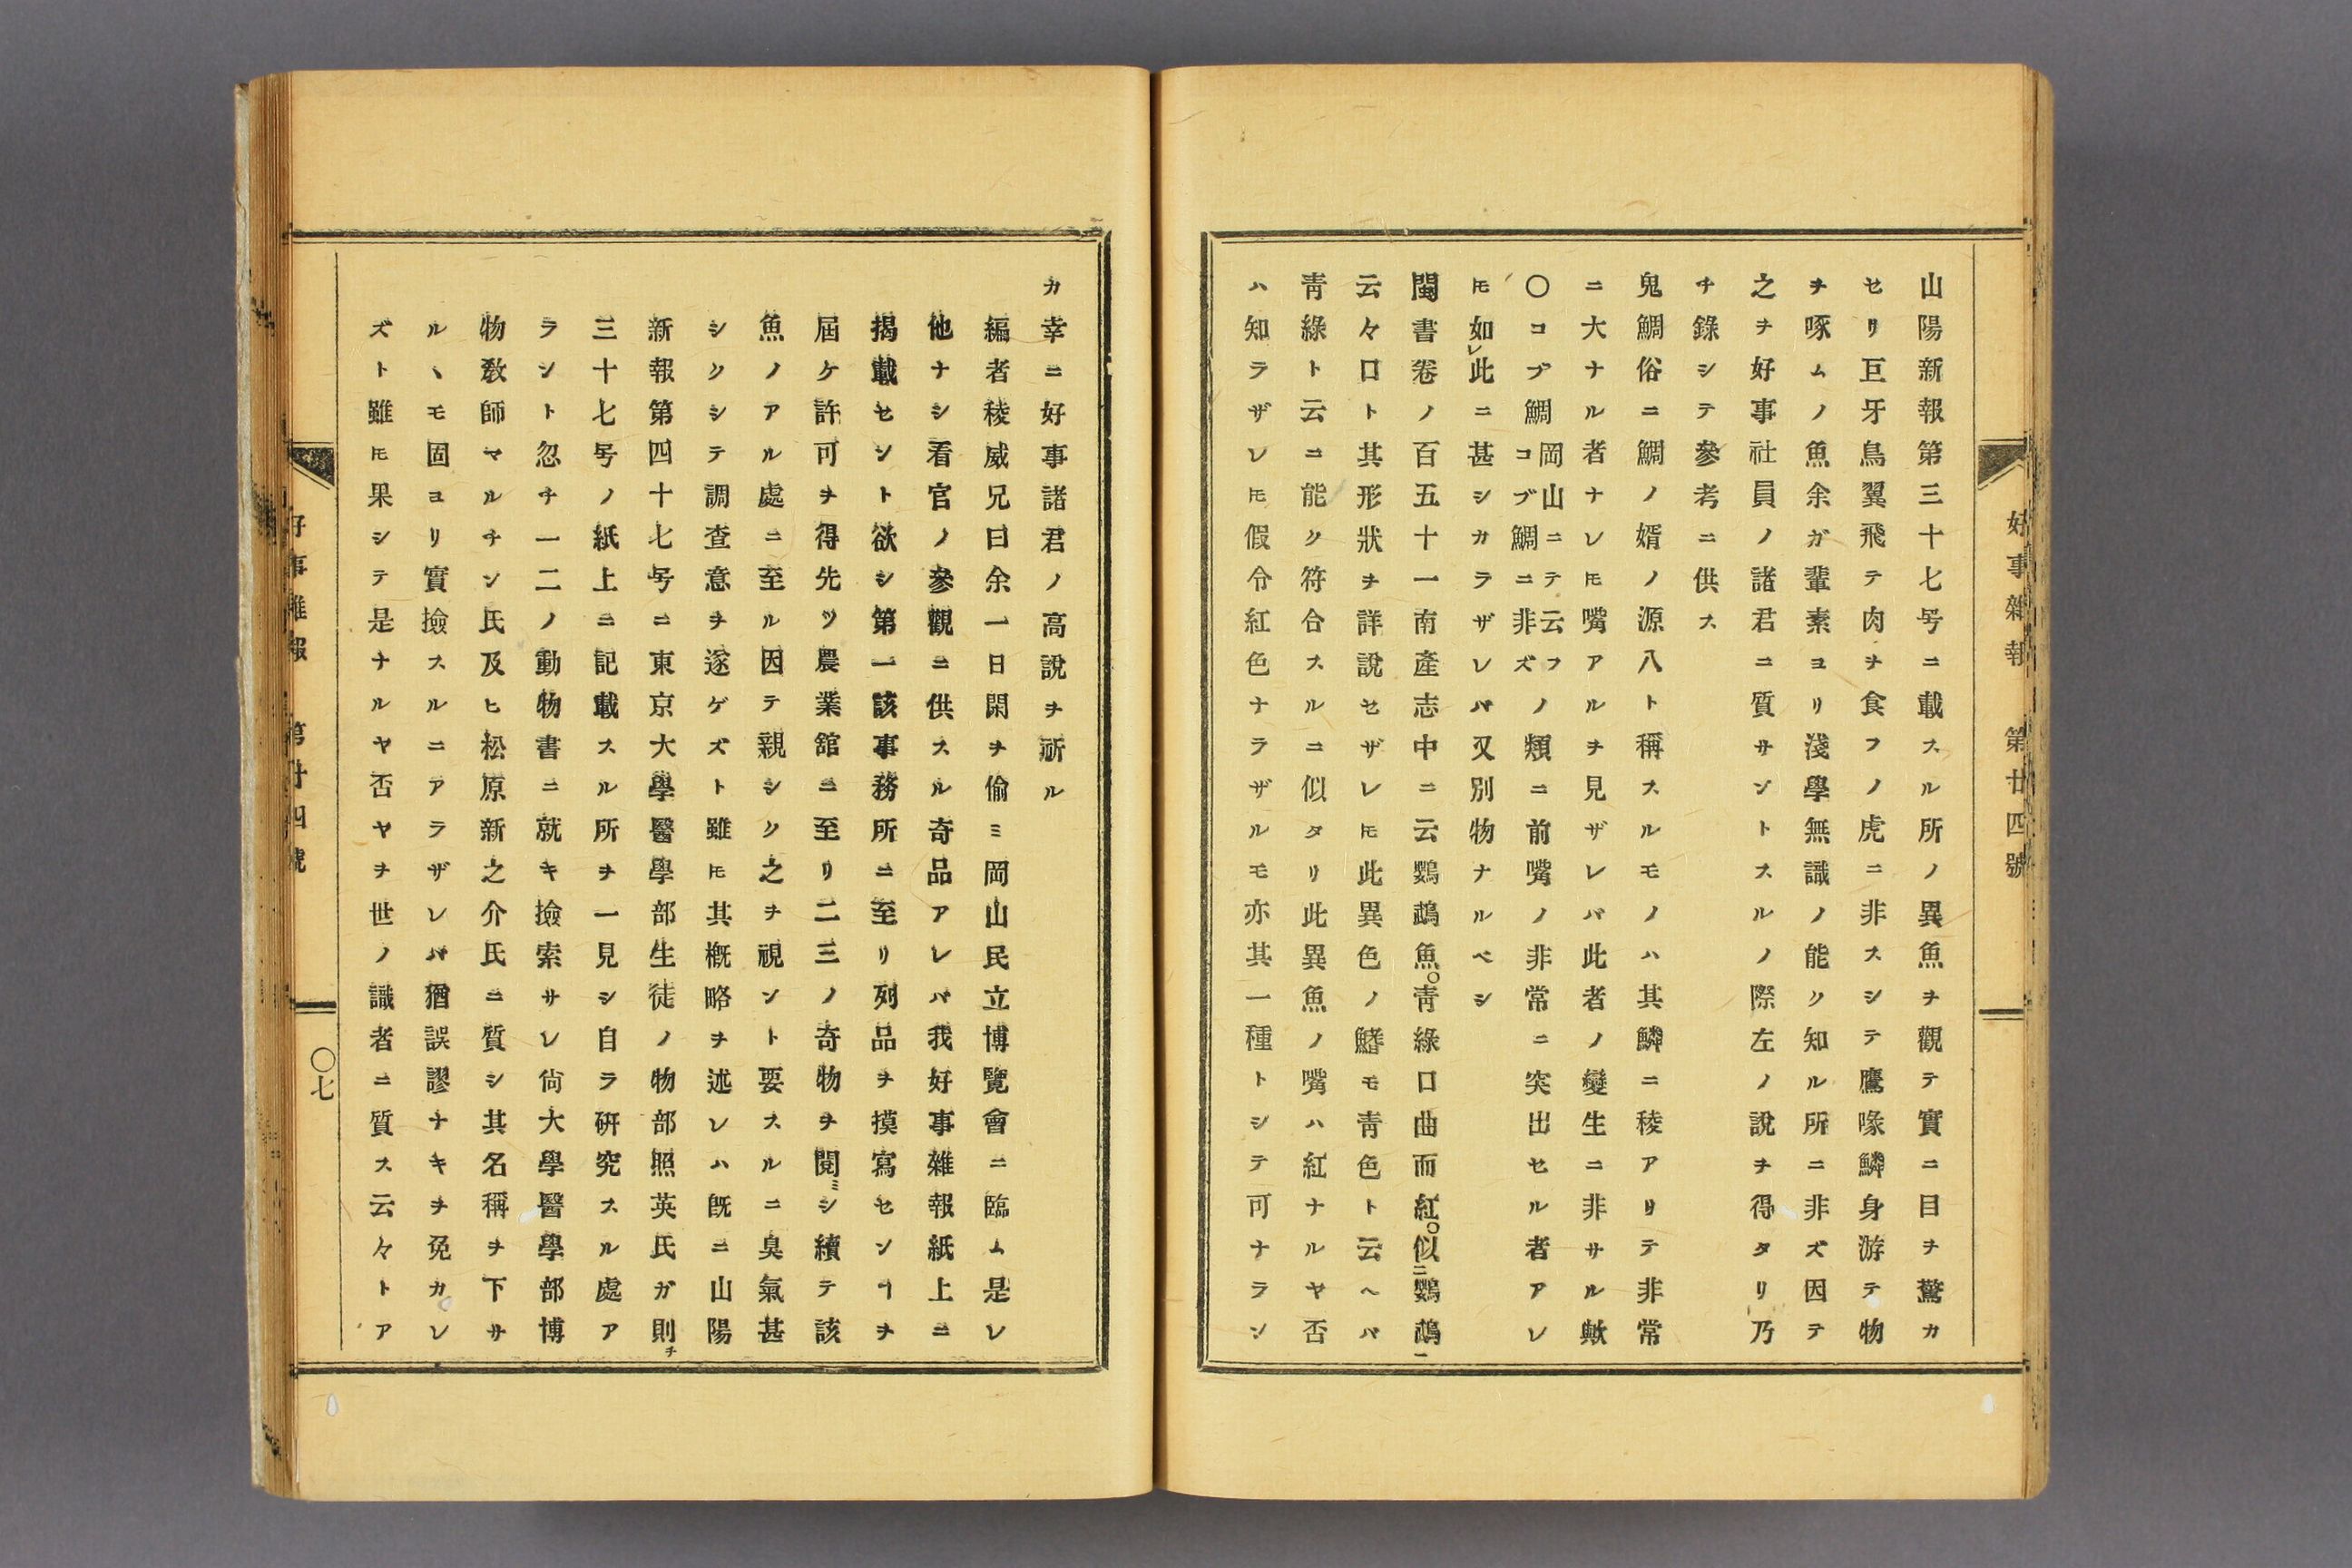 好事雜報　第廿四號
山陽新報第三十七号ニ載スル所ノ異魚ヲ觀テ實ニ目ヲ驚カ
セリ巨牙鳥翼飛テ肉ヲ食フノ虎ニ非スシテ鷹喙鱗身游テ物
ヲ啄ムノ魚余ガ輩素ヨリ淺學無識ノ能ク知ル所ニ非ズ因テ
之ヲ好事社員ノ諸君ニ質サントスルノ際左ノ說ヲ得タリ乃
チ錄シテ參考ニ供ス
鬼鯛俗ニ鯛ノ婿ノ源八ト稱スルモノハ其鱗ニ稜アリテ非常
ニ大ナル者ナレ𪜈嘴アルヲ見ザレバ此者ノ變生ニ非サル歟
〇コブ鯛岡山ニテ云フコブ鯛ニ非ズノ類ニ前嘴ノ非常ニ突出セル者アレ
𪜈如レ此ニ甚シカラザレバ又別物ナルベシ
閩書卷ノ百五十一南產志中ニ云鸚鵡魚〇靑綠口曲而紅〇似ニ鸚鵡一
云々口ト其形狀ヲ詳說セザレ𪜈此異色ノ鰭モ靑色ト云ヘバ
靑綠ト云ニ能ク符合スルニ似タリ此異魚ノ嘴ハ紅ナルヤ否
ハ知ラザレ𪜈假令紅色ナラザルモ亦其一種トシテ可ナラン
カ幸ニ好事諸君ノ高說ヲ祈ル
編者稜威兄曰余一日閑ヲ偷ミ岡山民立博覽會ニ臨ム是レ
他ナシ看官ノ參觀ニ供スル奇品アレバ我好事雜報紙上ニ
揭載セント欲シ第一該事務所ニ至リ列品ヲ摸寫センヿヲ
屆ケ許可ヲ得先ツ農業舘ニ至リ二三ノ奇物ヲ閱ミシ續テ該
魚ノアル處ニ至ル因テ親シク之ヲ視ント要スルニ臭氣甚
シクシテ調查意ヲ遂ゲズト雖𪜈其槪略ヲ述レハ旣ニ山陽
新報第四十七号ニ東京大學醫學部生徒ノ物部照英氏ガ則チ
三十七号ノ紙上ニ記載スル所ヲ一見シ自ラ硏究スル處ア
ラント忽チ一二ノ動物書ニ就キ撿索サレ尙大學醫學部博
物敎師マルチン氏及ヒ松原新之介氏ニ質シ其名稱ヲ下サ
ルヽモ固ヨリ實撿スルニアラザレバ猶誤謬ナキヲ免カレ
ズト雖𪜈果シテ是ナルヤ否ヤヲ世ノ識者ニ質ス云々トア
好事雜報　第廿四號
〇七